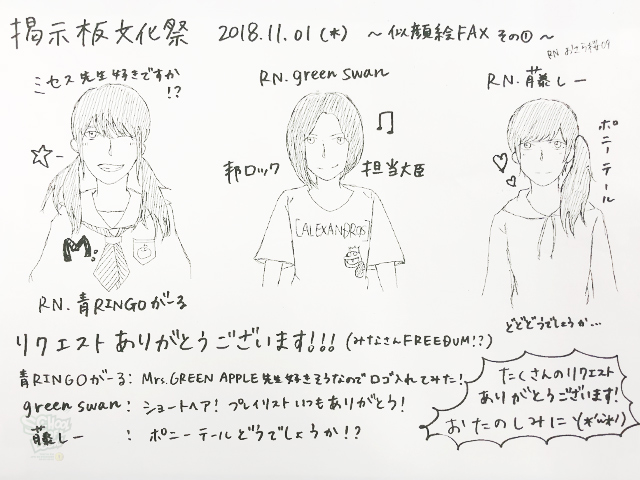 掲示板文化祭 2018.11.01(木) 〜似顔絵FAX その①〜
ミセス先生好きですか!?
RN. green swan
RN. 藤しー
邦ロック
担当大臣
ポニーテール
M.
[ALEXANDROS]
RN. 青RINGOがーる
どどどうでしょうか…
リクエストありがとうございます!!! (みなさんFREEDUM!?)
青RINGOがーる: Mrs.GREEN APPLE先生好きそうなのでロゴ入れてみた!
green swan: ショートヘア! プレイリストいつもありがとう!
藤しー: ポニーテールどうでしょうか!?
たくさんのリクエスト
ありがとうございます!
おたのしみに